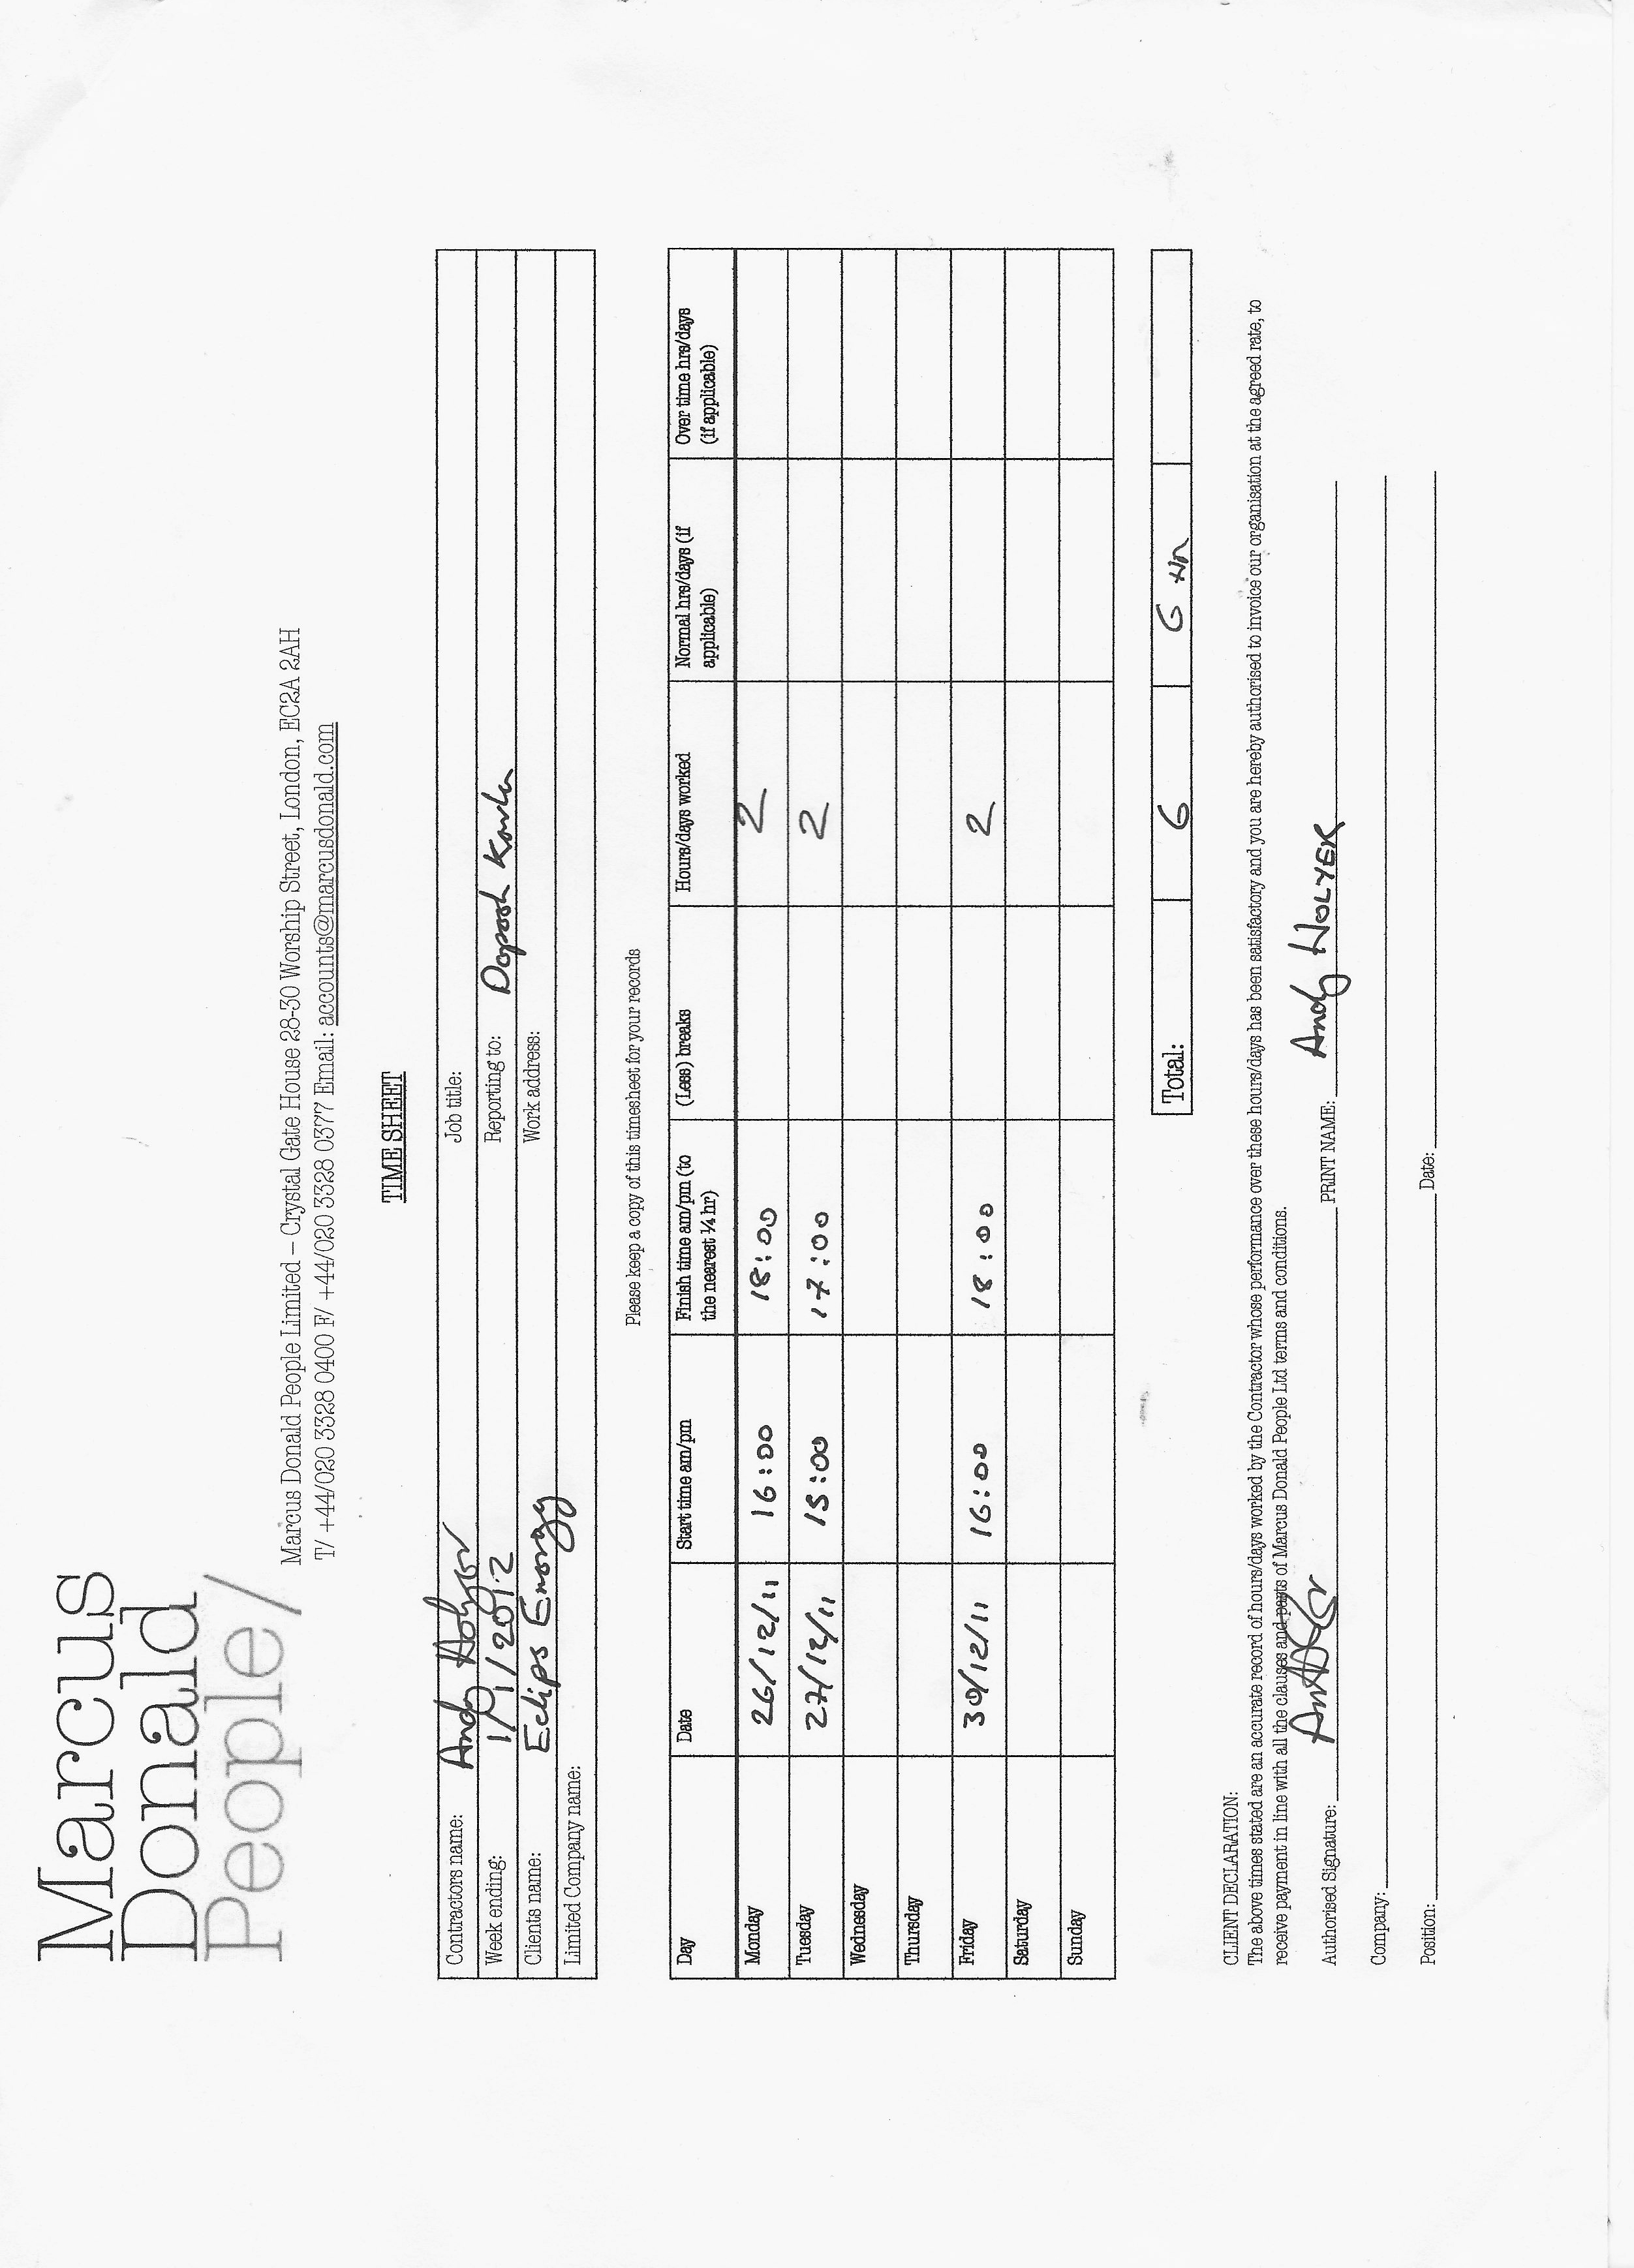 Marcus
Donald
People/
Marcus Donald People Limited – Crystal Gate House 28-30 Worship Street, London, EC2A 2AH
T/ +44/020 3328 0400 F/ +44/020 3328 0377 Email: accounts@marcusdonald.com
TIME SHEET
Contractors name: Andy Holyer Job title:
Week ending: 1/1/2012 Reporting to:
Clients name: Eclips Energy Work address:
Limited Company name:
Please keep a copy of this timesheet for your records
Day Date Start time am/pm Finish time am/pm (to the nearest ¼ hr) (Less) breaks Hours/days worked Normal hrs/days (if applicable) Over time hrs/days (if applicable)
Monday 26/12/11 16:00 18:00 2
Tuesday 27/12/11 15:00 17:00 2
Wednesday
Thursday
Friday 30/12/11 16:00 18:00 2
Saturday
Sunday
Total: 6 6
CLIENT DECLARATION:
The above times stated are an accurate record of hours/days worked by the Contractor whose performance over these hours/days has been satisfactory and you are hereby authorised to invoice our organisation at the agreed rate, to
receive payment in line with all the clauses and parts of Marcus Donald People Ltd terms and conditions.
Authorised Signature: PRINT NAME: Andy HOLYER
Company:
Position: Date: